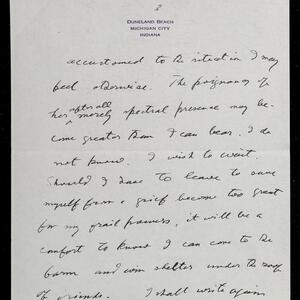 2
DUNELAND BEACH
MICHIGAN CITY
INDIANA
accustomed to the situation I may
feel otherwise. The poignancy of
after all
her merely spectral presence may be-
come greater than I can bear. I do
not know. I wish to wait.
Should I have to leave to save
myself from a grief become too great
for my frail powers, it will be a
comfort to know I can come to the
farm and own shelter under the roof
of friends. I shall write again